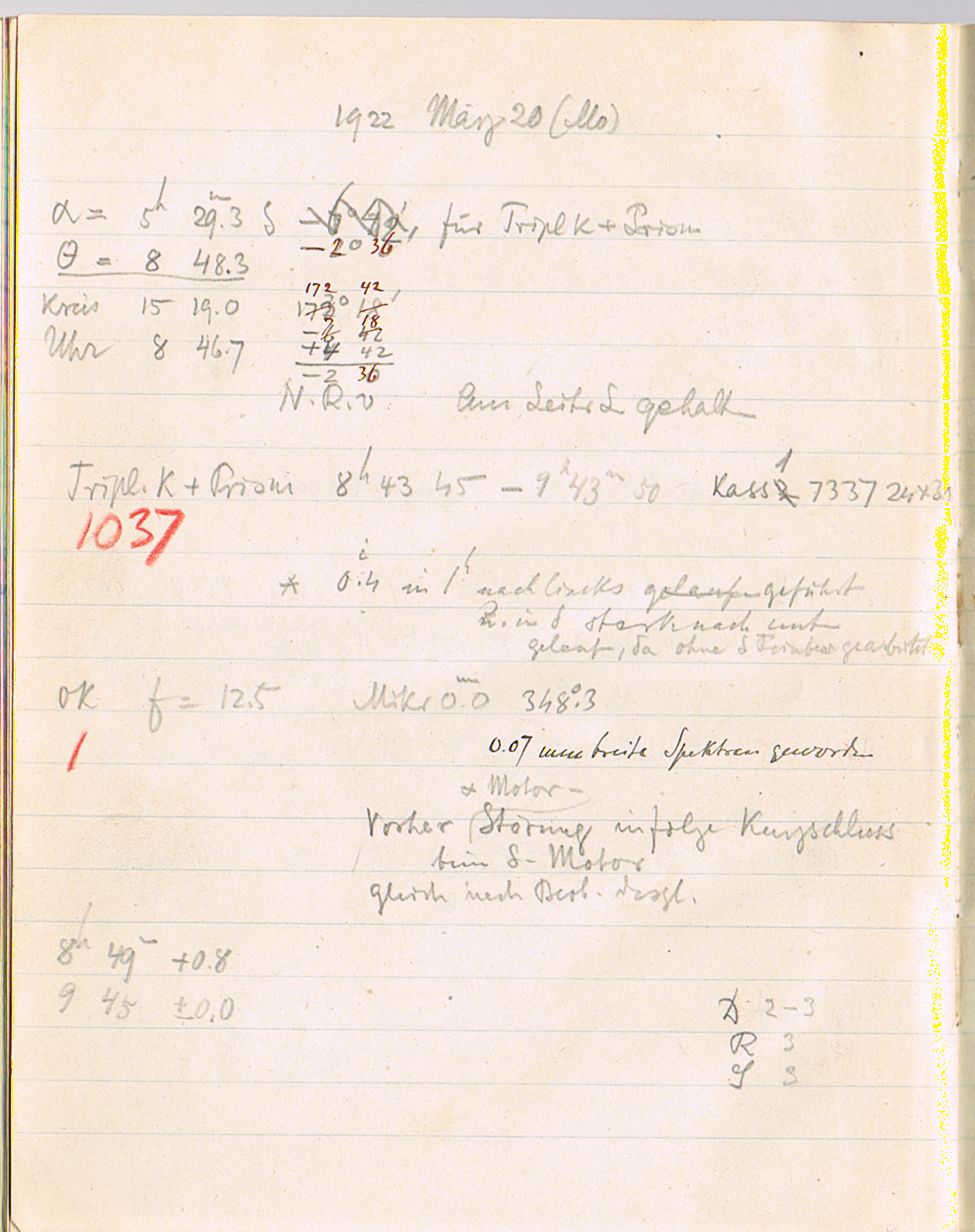 1922 März 20 (Mo)
α = 5h 29m.3 δ
−2° 36 für Tripl K + Prism
Θ = 8 48.3
172 42
Kreis 15 19.0
18
Uhr 8 46.7 +4 42
−2 36
N.R.v. Am Seite gehalt
Tripl. K + Prism 8h 43 45 − 9h 43m 50 Kass 1 7337 24x3
1037
* 0.4 in 1h nach links gelaufen geführt
in δ stark nach unt
gelauf, da ohne δ Feinbew gearbeitet
OK f = 12.5 Mikr 0.0 348°.3
1
0.07 mm breite Spektren geworden
α Motor −
Vorher Störung infolge Kurzschluss
beim δ-Motor
gleich nach Beob. desgl.
8h 49m +0.8
9 45 ±0.0
D 2−3
R 3
S 3